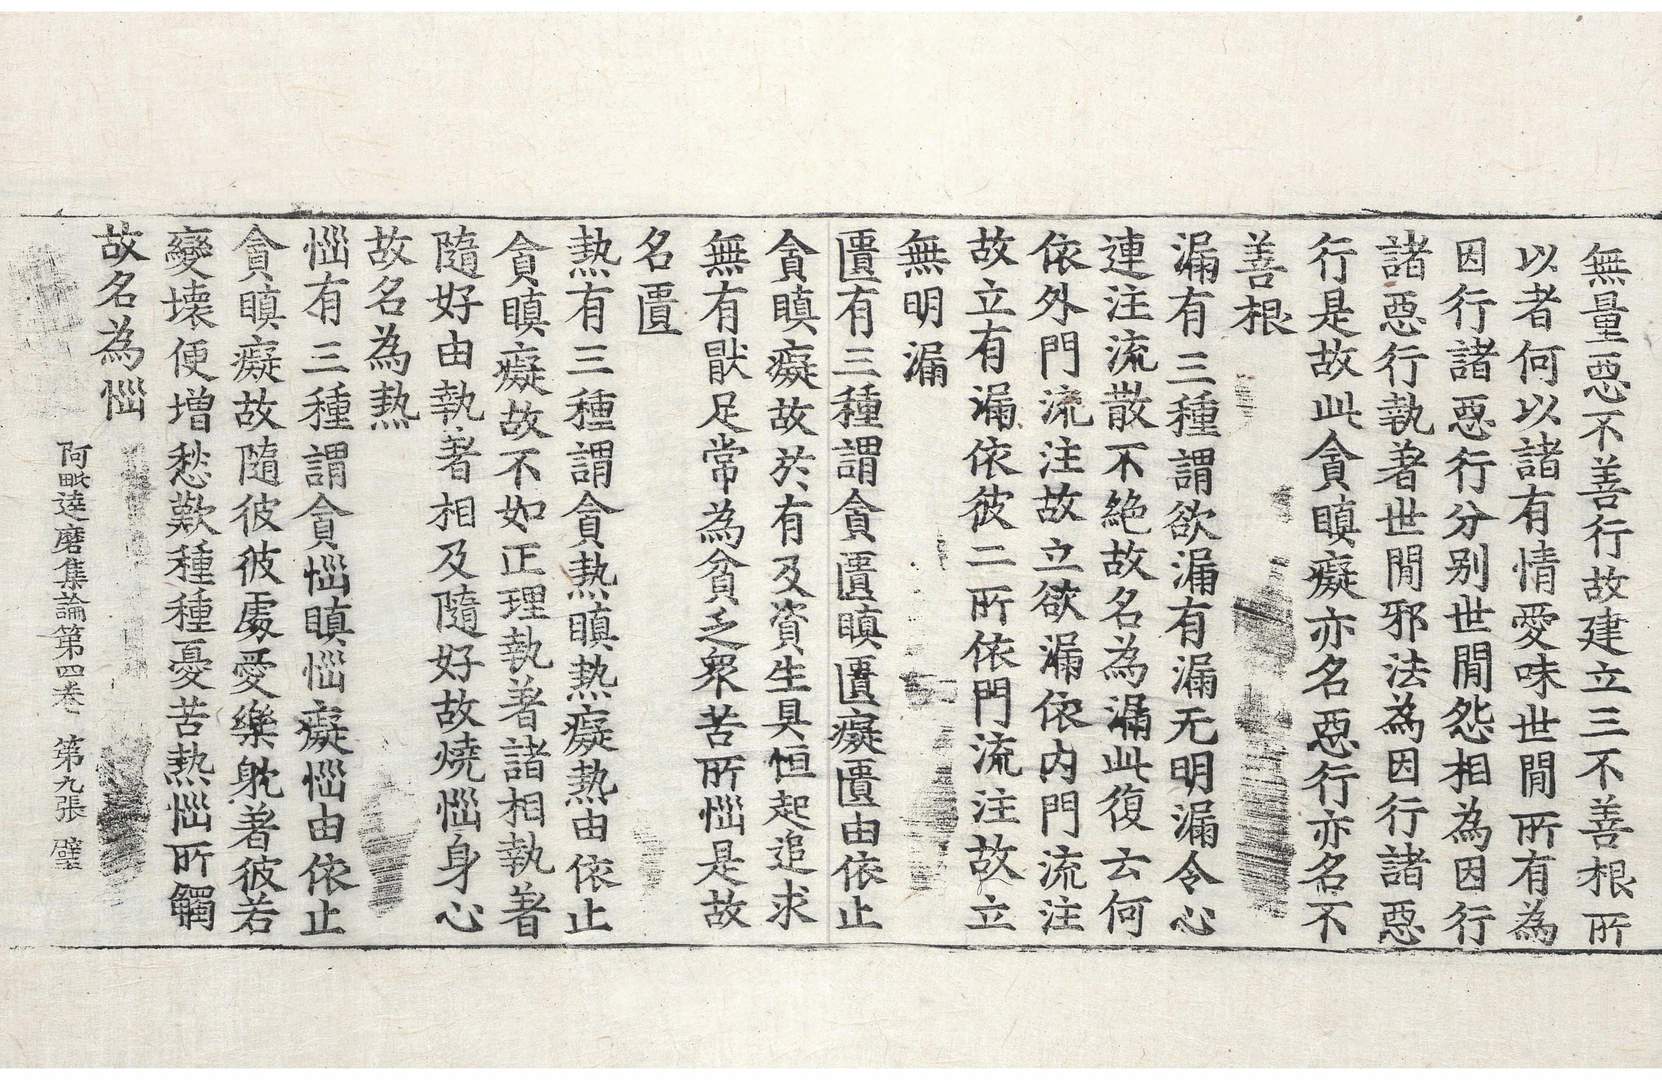 無量惡不善行故建立三不善根所
以者何以諸有情愛味世閒所有為
因行諸惡行分別世閒怨相為因行
諸惡行執著世閒邪法為因行諸惡
行是故此貪瞋癡亦名惡行亦名不
善根
漏有三種謂欲漏有漏无明漏令心
連注流散不絶故名為漏此復云何
依外門流注故立欲漏依內門流注
故立有漏依彼二所依門流注故立
無明漏
匱有三種謂貪匱瞋匱癡匱由依止
貪瞋癡故於有及資生具恒起追求
無有猒足常為貧乏衆苦所惱是故
名匱
熱有三種謂貪熱瞋熱癡熱由依止
貪瞋癡故不如正理執著諸相執著
隨好由執著相及隨好故燒惱身心
故名為熱
惱有三種謂貪惱瞋惱癡惱由依止
貪瞋癡故隨彼彼處愛樂躭著彼若
變壞便增愁歎種種憂苦熱惱所觸
故名為惱
阿毗達磨集論第四卷 第九張 璧